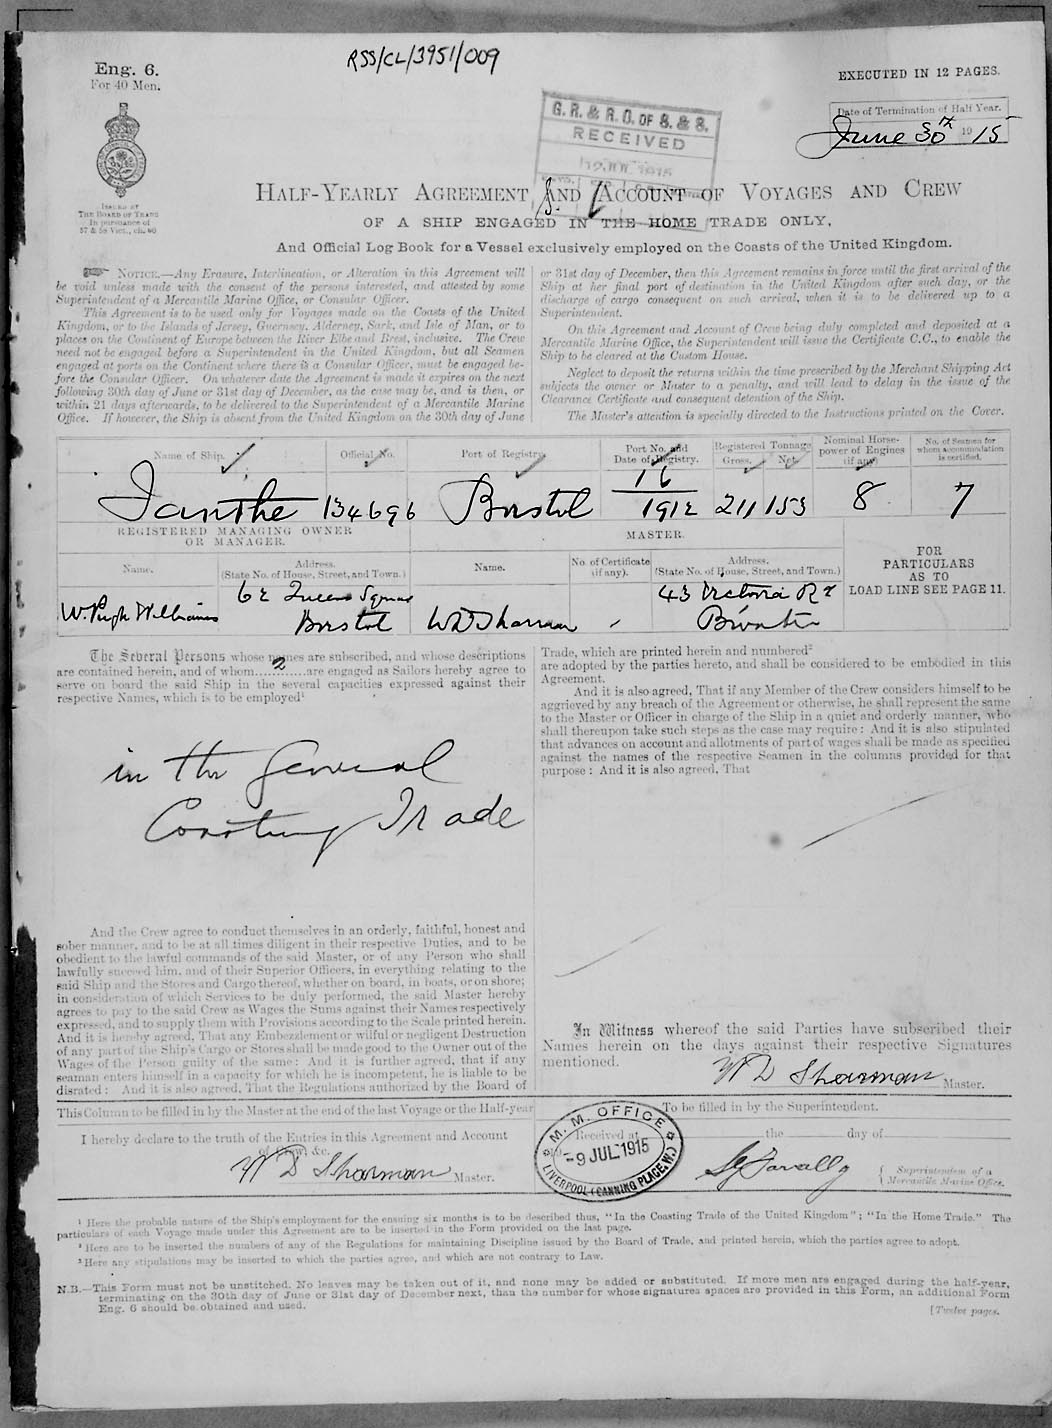 RSS/CL/3951/009
Eng. 6.
For 40 Men.
EXECUTED IN 12 PAGES.
Date of Termination of Half Year.
June 30th 1915
G. R. & R. O. OF S. & S.
RECEIVED
ISSUED BY
THE BOARD OF TRADE
In pursuance of
57 & 58 Vict., ch. 60
HALF-YEARLY AGREEMENT AND ACCOUNT OF VOYAGES AND CREW
OF A SHIP ENGAGED IN THE HOME TRADE ONLY,
And Official Log Book for a Vessel exclusively employed on the Coasts of the United Kingdom.
NOTICE.—Any Erasure, Interlineation, or Alteration in this Agreement will
be void unless made with the consent of the persons interested, and attested by some
Superintendent of a Mercantile Marine Office, or Consular Officer.
This Agreement is to be used only for Voyages made on the Coasts of the United
Kingdom, or to the Islands of Jersey, Guernsey, Alderney, Sark, and Isle of Man, or to
places on the Continent of Europe between the River Elbe and Brest, inclusive. The Crew
need not be engaged before a Superintendent in the United Kingdom, but all Seamen
engaged at ports on the Continent where there is a Consular Officer, must be engaged be-
fore the Consular Officer. On whatever date the Agreement is made it expires on the next
following 30th day of June or 31st day of December, as the case may be, and is then, or
within 21 days afterwards, to be delivered to the Superintendent of a Mercantile Marine
Office. If however, the Ship is absent from the United Kingdom on the 30th day of June
or 31st day of December, then this Agreement remains in force until the first arrival of the
Ship at her final port of destination in the United Kingdom after such day, or the
discharge of cargo consequent on such arrival, when it is to be delivered up to a
Superintendent.
On this Agreement and Account of Crew being duly completed and deposited at a
Mercantile Marine Office, the Superintendent will issue the Certificate C.C., to enable the
Ship to be cleared at the Custom House.
Neglect to deposit the returns within the time prescribed by the Merchant Shipping Act
subjects the owner or Master to a penalty, and will lead to delay in the issue of the
Clearance Certificate and consequent detention of the Ship.
The Master's attention is specially directed to the Instructions printed on the Cover.
Name of Ship. Official No. Port of Registry. Port No. and Date of Registry. Registered Tonnage Gross. Net. Nominal Horse-power of Engines (if any) No. of Seamen for whom accommodation is certified.
Ianthe 134696 Bristol 16/1912 211 153 8 7
REGISTERED MANAGING OWNER OR MANAGER.
MASTER.
FOR PARTICULARS AS TO LOAD LINE SEE PAGE 11.
Name. Address. (State No. of House, Street, and Town.) Name. No. of Certificate (if any). Address. (State No. of House, Street, and Town.)
W. Pugh Williams 62 Queen Square Bristol W D Sharman 43 Victoria Rd
The Several Persons whose names are subscribed, and whose descriptions
are contained herein, and of whom 2 are engaged as Sailors hereby agree to
serve on board the said Ship in the several capacities expressed against their
respective Names, which is to be employed¹
in the General
Coasting Trade
And the Crew agree to conduct themselves in an orderly, faithful, honest and
sober manner, and to be at all times diligent in their respective Duties, and to be
obedient to the lawful commands of the said Master, or of any Person who shall
lawfully succeed him, and of their Superior Officers, in everything relating to the
said Ship and the Stores and Cargo thereof, whether on board, in boats, or on shore;
in consideration of which Services to be duly performed, the said Master hereby
agrees to pay to the said Crew as Wages the Sums against their Names respectively
expressed, and to supply them with Provisions according to the Scale printed herein.
And it is hereby agreed, That any Embezzlement or wilful or negligent Destruction
of any part of the Ship's Cargo or Stores shall be made good to the Owner out of the
Wages of the Person guilty of the same: And it is further agreed, that if any
seaman enters himself in a capacity for which he is incompetent, he is liable to be
disrated: And it is also agreed, That the Regulations authorized by the Board of
Trade, which are printed herein and numbered²
are adopted by the parties hereto, and shall be considered to be embodied in this
Agreement.
And it is also agreed, That if any Member of the Crew considers himself to be
aggrieved by any breach of the Agreement or otherwise, he shall represent the same
to the Master or Officer in charge of the Ship in a quiet and orderly manner, who
shall thereupon take such steps as the case may require: And it is also stipulated
that advances on account and allotments of part of wages shall be made as specified
against the names of the respective Seamen in the columns provided for that
purpose: And it is also agreed, That
In Witness whereof the said Parties have subscribed their
Names herein on the days against their respective Signatures
mentioned.
W D Sharman Master.
This Column to be filled in by the Master at the end of the last Voyage or the Half-year
To be filled in by the Superintendent.
I hereby declare to the truth of the Entries in this Agreement and Account
of Crew, &c.
W D Sharman Master.
M. M. OFFICE
-9 JUL 1915
LIVERPOOL (CANNING PLACE. W.)
Received at the day of
Superintendent of a
Mercantile Marine Office.
¹ Here the probable nature of the Ship's employment for the ensuing six months is to be described thus, "In the Coasting Trade of the United Kingdom"; "In the Home Trade." The
particulars of each Voyage made under this Agreement are to be inserted in the Form provided on the last page.
² Here are to be inserted the numbers of any of the Regulations for maintaining Discipline issued by the Board of Trade, and printed herein, which the parties agree to adopt.
³ Here any stipulations may be inserted to which the parties agree, and which are not contrary to Law.
N.B.—This Form must not be unstitched. No leaves may be taken out of it, and none may be added or substituted. If more men are engaged during the half-year,
terminating on the 30th day of June or 31st day of December next, than the number for whose signatures spaces are provided in this Form, an additional Form
Eng. 6 should be obtained and used.
[Twelve pages.